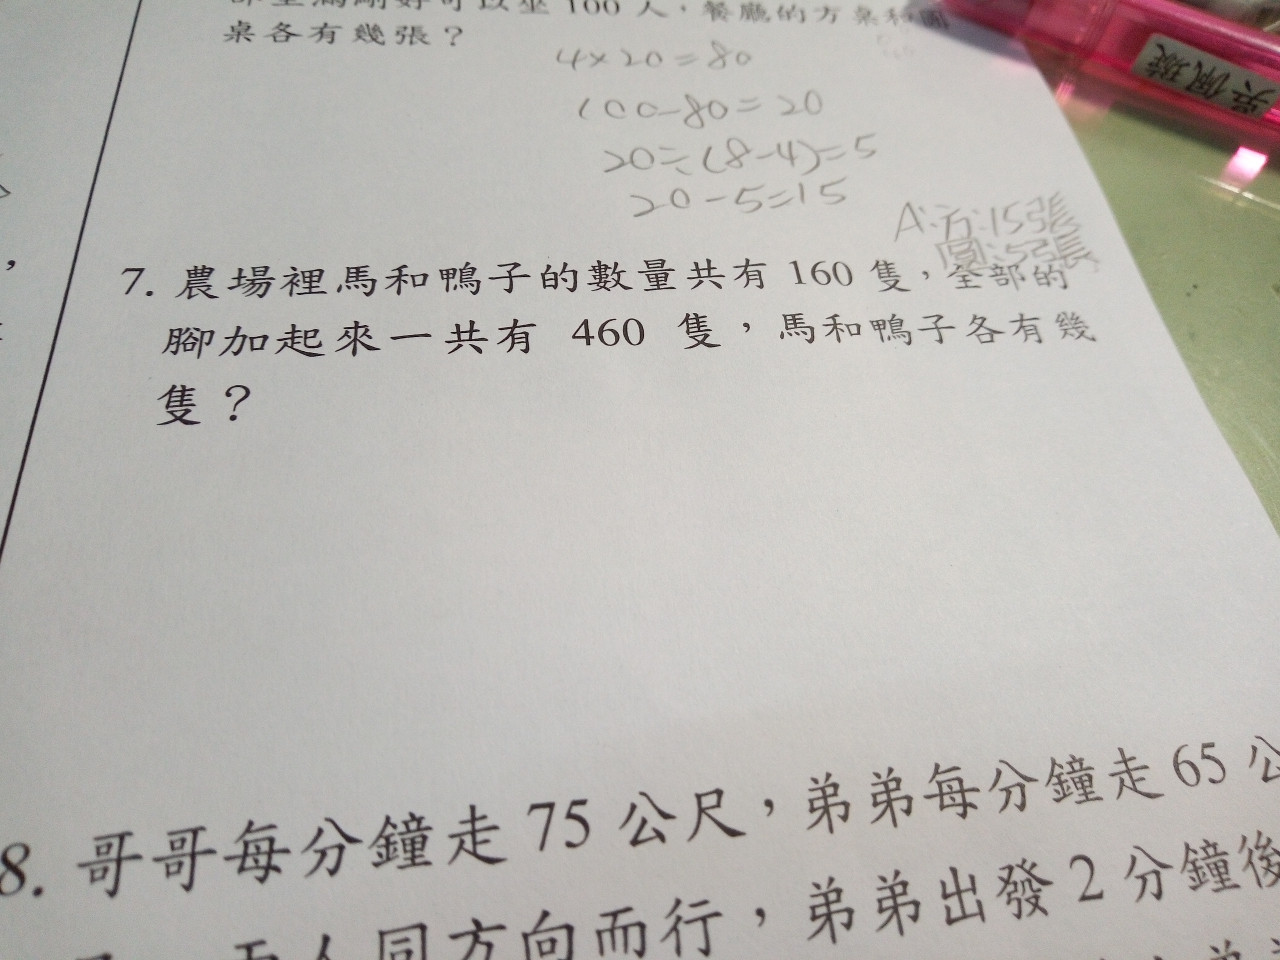 100 人，餐廳的方桌和圓
桌各有幾張？
4×20=80
100-80=20
20÷(8-4)=5
20-5=15
A:方:15張
圓:5張
吳佩璇
7. 農場裡馬和鴨子的數量共有 160 隻，全部的
腳加起來一共有 460 隻，馬和鴨子各有幾
隻？
8. 哥哥每分鐘走 75 公尺，弟弟每分鐘走 65 公
人同方向而行，弟弟出發 2 分鐘後